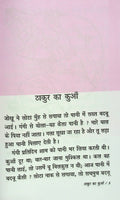 ठाकुर का कुआँ
जोखू ने लोटा मुँह से लगाया तो पानी में सख्त बदबू
आई। गंगी से बोला-यह कैसा पानी है ? मारे बास
के पिया नहीं जाता। गला सूखा जा रहा है और तू सड़ा
हुआ पानी पिलाए देती है।
गंगी प्रतिदिन शाम को पानी भर लिया करती थी।
कुआँ दूर था; बार-बार जाना मुश्किल था। कल वह
पानी लाई, तो उसमें बू बिलकुल न थी; आज पानी में
बदबू कैसी? लोटा नाक से लगाया, तो सचमुच बदबू
ठाकुर का कुआँ / 5